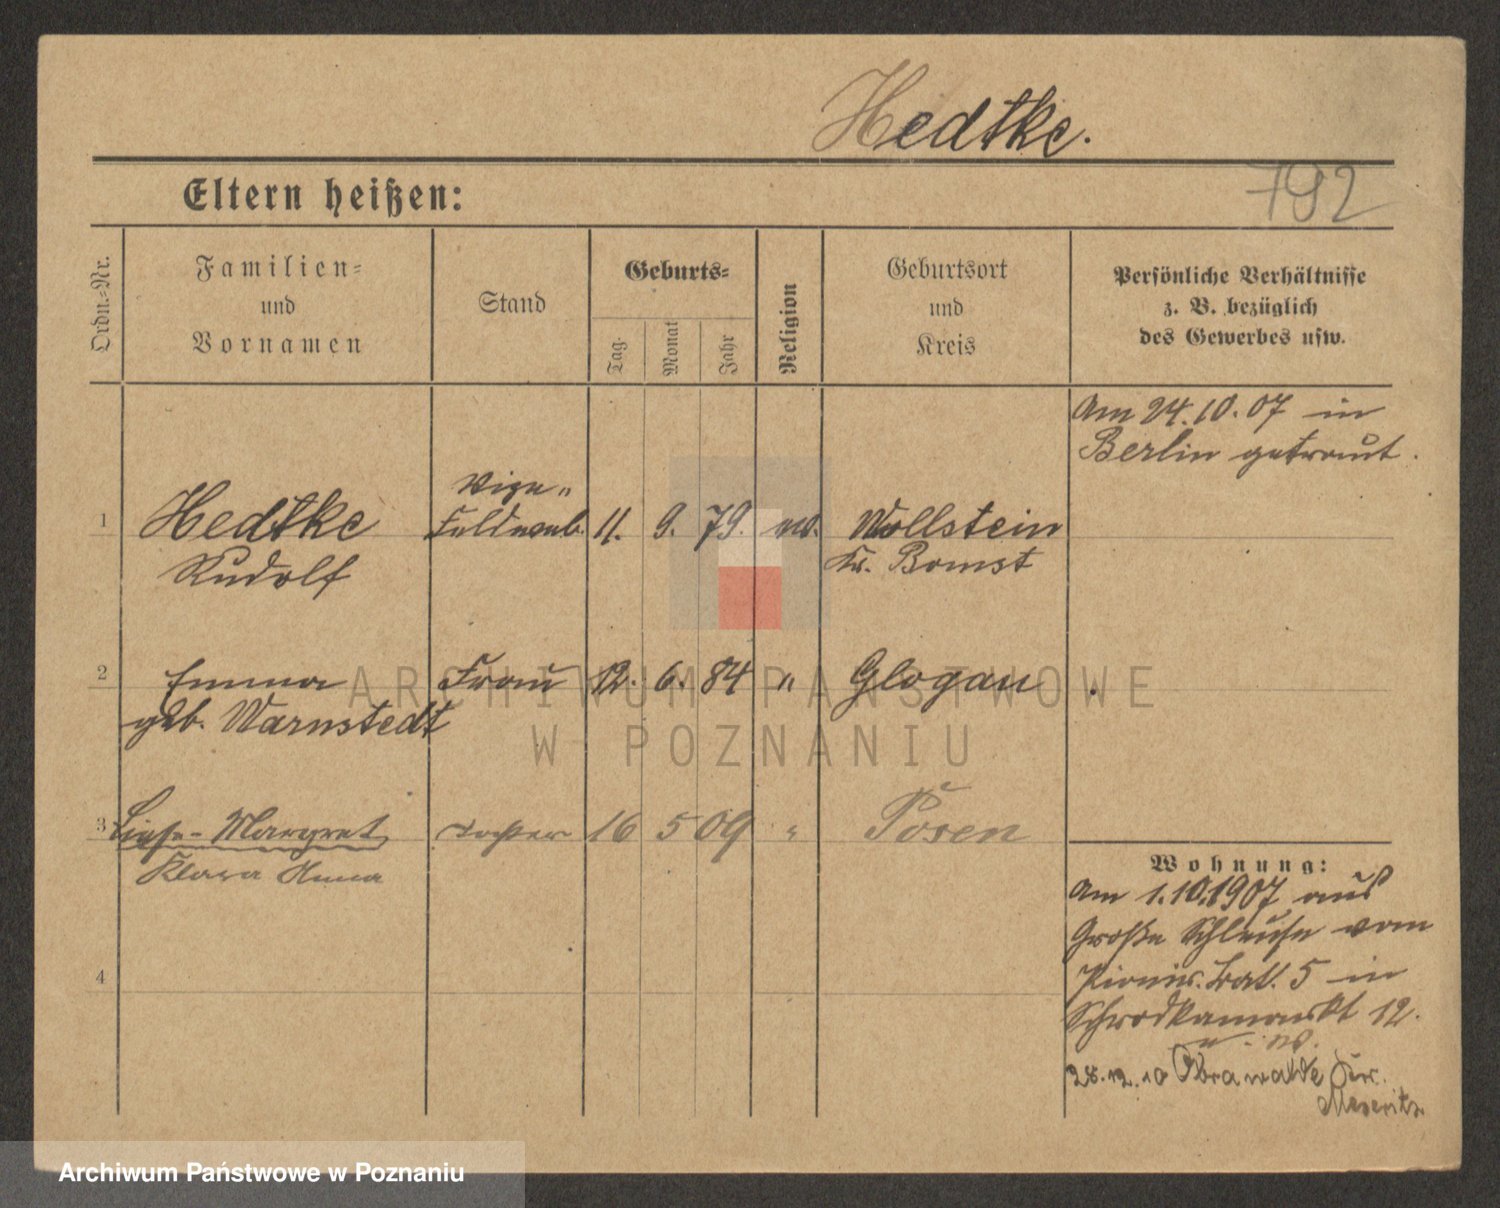 Hedtke.
792
Eltern heißen:
Ordn.-Nr.
Familien-
und
Vornamen
Stand
Geburts-
Tag.
Monat
Jahr
Religion
Geburtsort
und
Kreis
Persönliche Verhältnisse
z. B. bezüglich
des Gewerbes usw.
Am 24.10.07 in
Berlin getraut.
1
Hedtke
Rudolf
Vize-
Feldweb.
11. 9. 79. ev.
Wollstein
Kr. Bomst
2
Emma
geb. Warnstedt
Frau
12. 6. 84 "
Glogau
3
Margret
Klara Anna
Tochter
16 5 09 "
Posen
4
Wohnung:
Am 1.10.1907 aus
Große Schleuse vom
Pionir. Batl. 5 in
Schrodkamarkt 12.
28.12.10 Obrawalde
Meseritz
ARCHIWUM PAŃSTWOWE
W POZNANIU
Archiwum Państwowe w Poznaniu